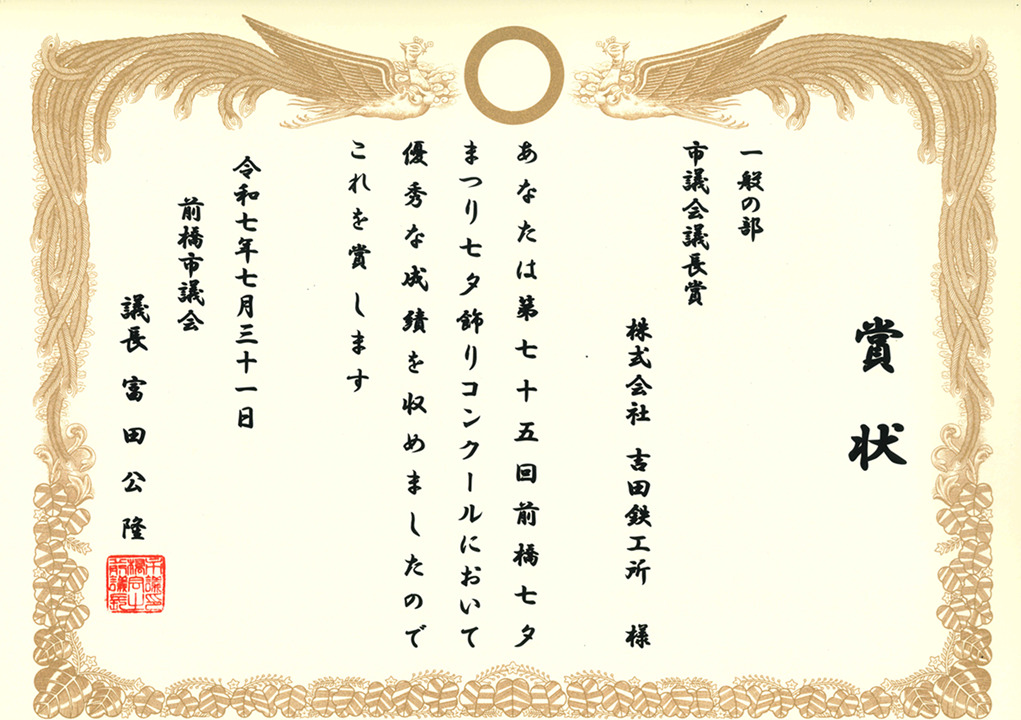 賞状
一般の部
市議会議長賞
株式会社 吉田鉄工所 様
あなたは第七十五回前橋七夕
まつり七夕飾りコンクールにおいて
優秀な成績を収めましたので
これを賞します
令和七年七月三十一日
前橋市議会
議長 富田公隆